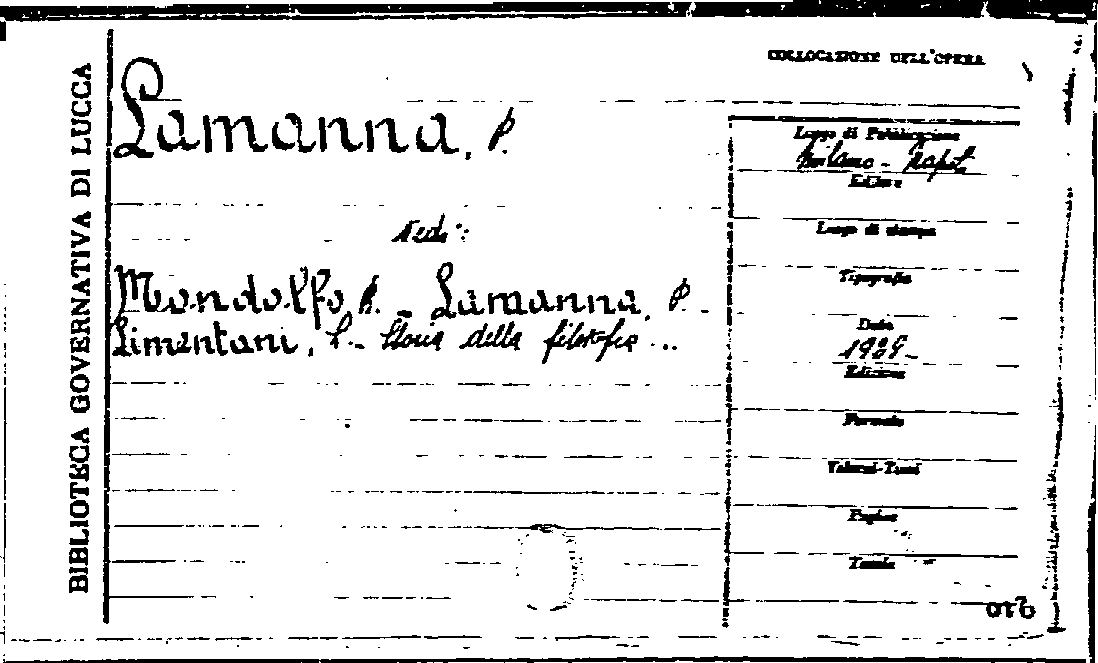 BIBLIOTECA GOVERNATIVA DI LUCCA
COLLOCAZIONE DELL'OPERA
Lamanna, P.
Luogo di Pubblicazione
Milano - Napoli
Editore
Vedi:
Luogo di stampa
Mondolfo R. - Lamanna, P. -
Tipografia
Limentani, L. - Storia della filosofia ...
Data
Edizione
Formato
Volumi-Tomi
Pagine
Tavole